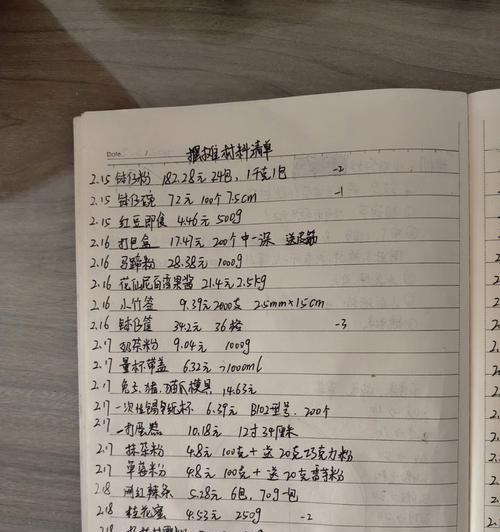 Date. /
摆摊材料清单
2.15 钵仔粉 182.28元 24包, 1千克1包 -2
2.15 钵仔碗 72元 100个 7.5cm -1
2.15 红豆即食 4.46元 500g
2.16 打包盒 17.47元 200个 中一深 送皮筋
2.16 马蹄粉 28.38元 1000g
2.16 花仙尼百香果酱 21.4元 2.5kg
2.16 小竹签 9.39元 2000支 2.5mm×15cm
2.16 钵仔筐 34.2元 36格 -3
2.17 奶茶粉 9.04元 1000g
2.17 量杯带盖 6.32元 1000ml
2.17 兔子.猪.猫爪模具 14.63元
2.17 一次性锡纸杯 6.39元 B102型号, 200个
2.17 打蛋器 10.18元 12寸34厘米
2.17 抹茶粉 4.8元 100克+送20克巧克力粉
2.17 草莓粉 4.8元 100克+送20克香芋粉
2.18 网红辣条 5.28元 6包, 70g一包
2.18 桂花蜜 4.53元 250g -2
2.18